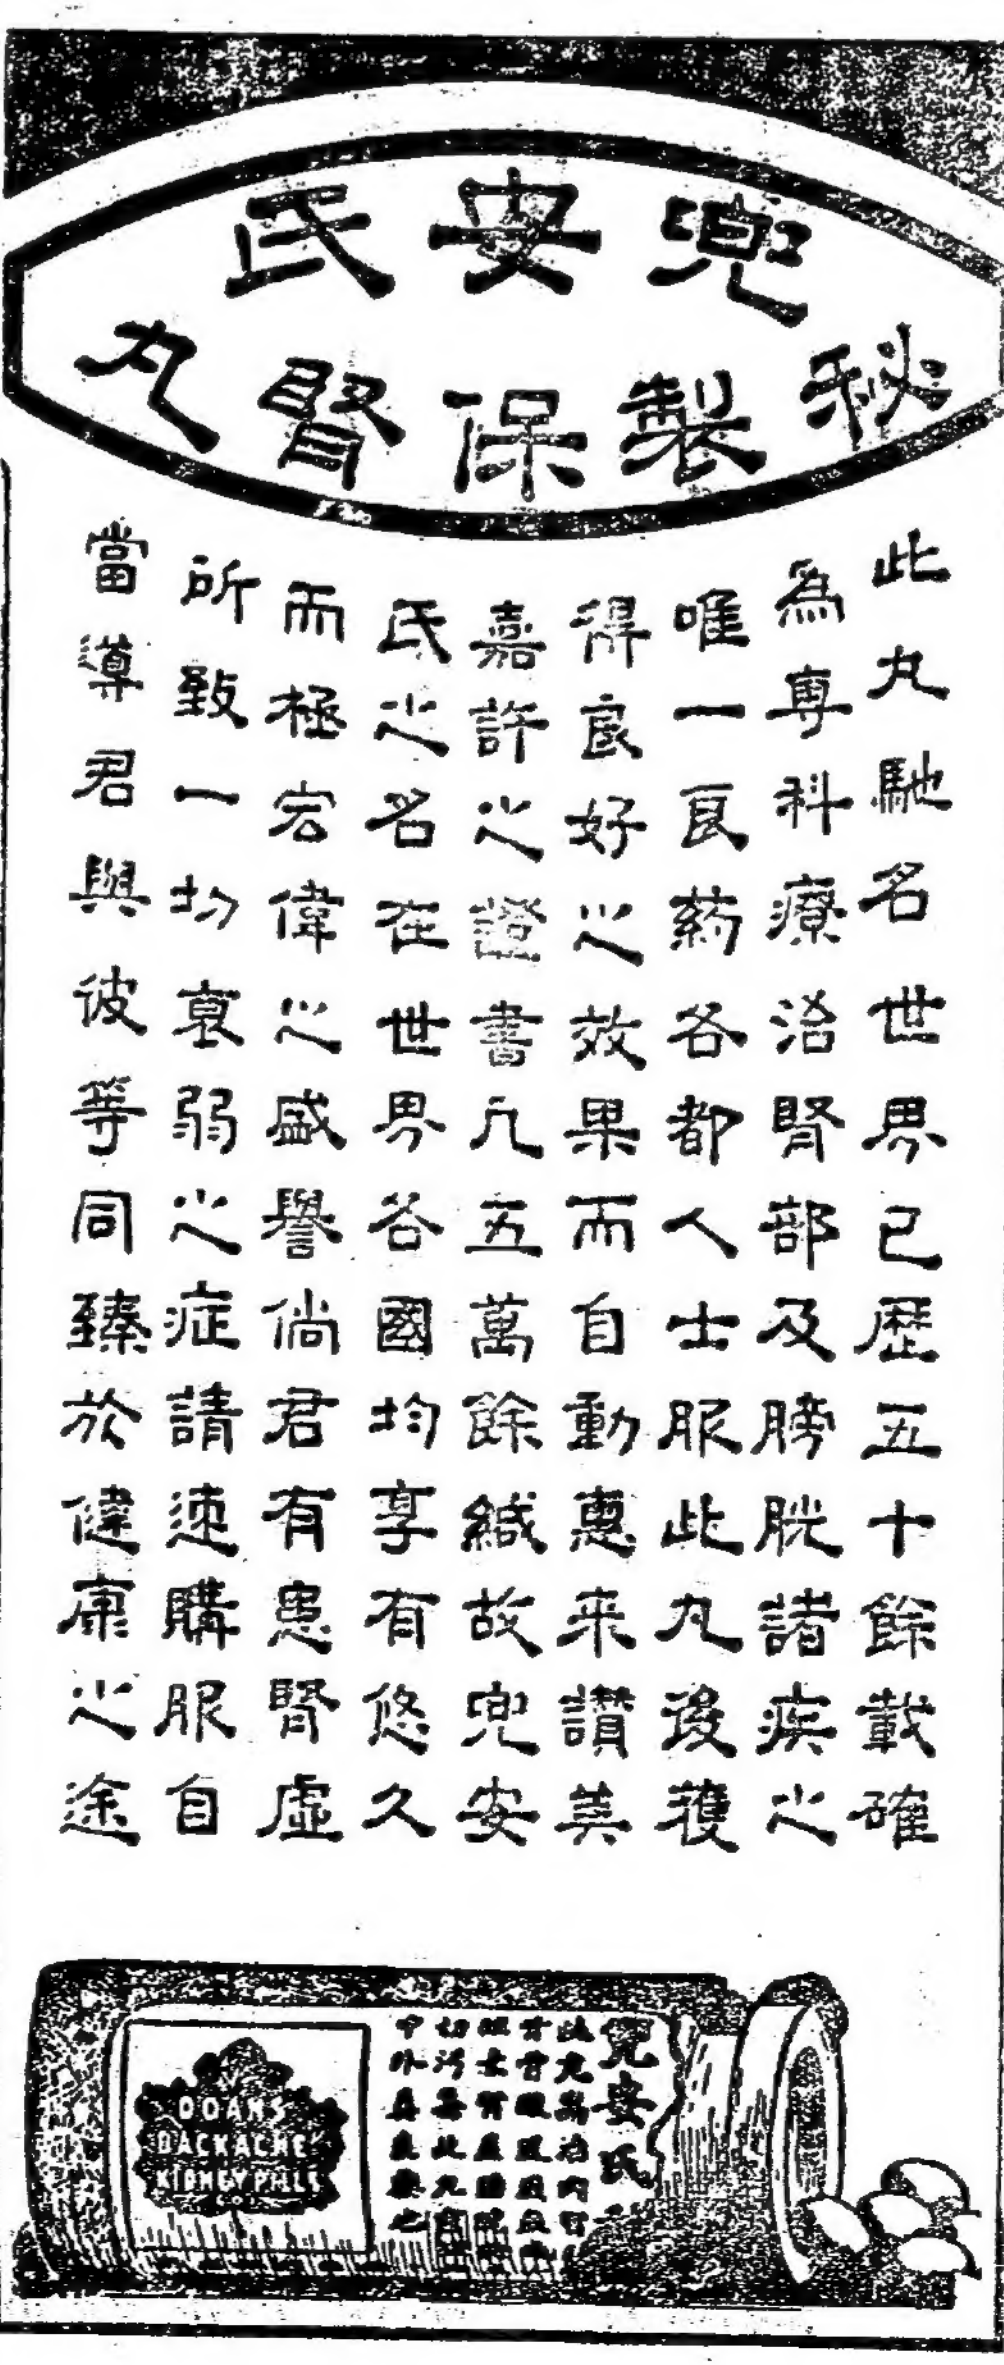 兜安氏
秘製保腎丸
此丸馳名世界已歷五十餘載確
為專科療治腎部及膀胱諸疾之
唯一良藥各都人士服此丸後獲
得良好之效果而自動惠来讃美
嘉許之證書凡五萬餘緘故兜安
氏之名在世界各國均享有悠久
而極宏偉之盛譽倘君有患腎虛
所致一切衰弱之症請速購服自
當導君與彼等同臻於健康之途
兜安氏
DOAN'S
BACKACHE
KIDNEY PILLS